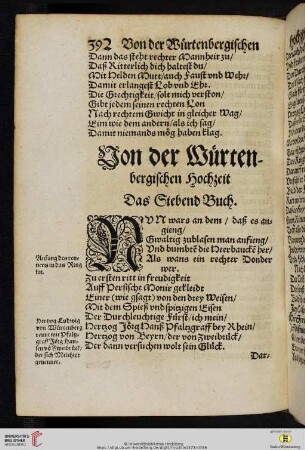 392 Von der Würtenbergischen
Dann das steht rechter Mannheit zu/
Daß Ritterlich dich haltest du/
Mit Helden Mutt/ auch Faust vnd Wehr/
Damit erlangest Lob vnd Ehr.
Die Grechtigkeit/ solt mich verston/
Gibt jedem seinen rechten Lon
Nach rechtem Gwicht in gleicher Wag/
Eim wie dem andern/ als ich sag/
Damit niemands mög haben klag.
Von der Würten-
bergischen Hochzeit
Das Siebend Buch.
NVN wars an dem/ daß es an-
gieng/
Gwaltig zublasen man anfieng/
Vnd bumbeß die Heerbauckẽ her/
Als wans ein rechter Donder
wer.
Zu ersten ritt in freudigkeit
Auff Persische Monir gekleidt
Einer (wie gsagt) von den drey Weisen/
Mit dem Spieß vnd spitzigen Eisen
Der Durchleuchtige Fürst/ ich mein/
Hertzog Jörg Hanß Pfaltzgraff bey Rhein/
Hertzog von Beyrn/ der von Zweibrück/
Der dann versuchen wolt sein Glück.
Dar-
Anfang des ren-
nens in das Ring
lin.
Hertzog Ludwig
von Würtenberg
rennt mit Pfaltz-
graff Jörg Han-
sen vō Zweibrück/
der sich Melchior
genennet.
UNIVERSITÄTS-
BIBLIOTHEK
HEIDELBERG